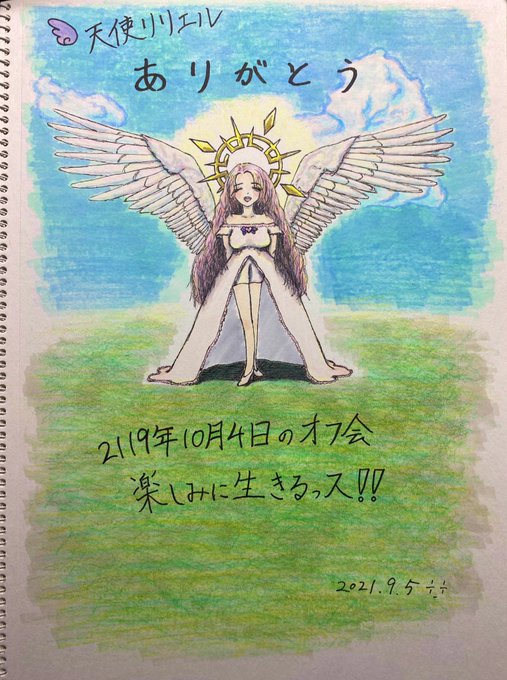 天使リリエル
ありがとう
2119年10月4日のオフ会
楽しみに生きるっス!!
2021.9.5